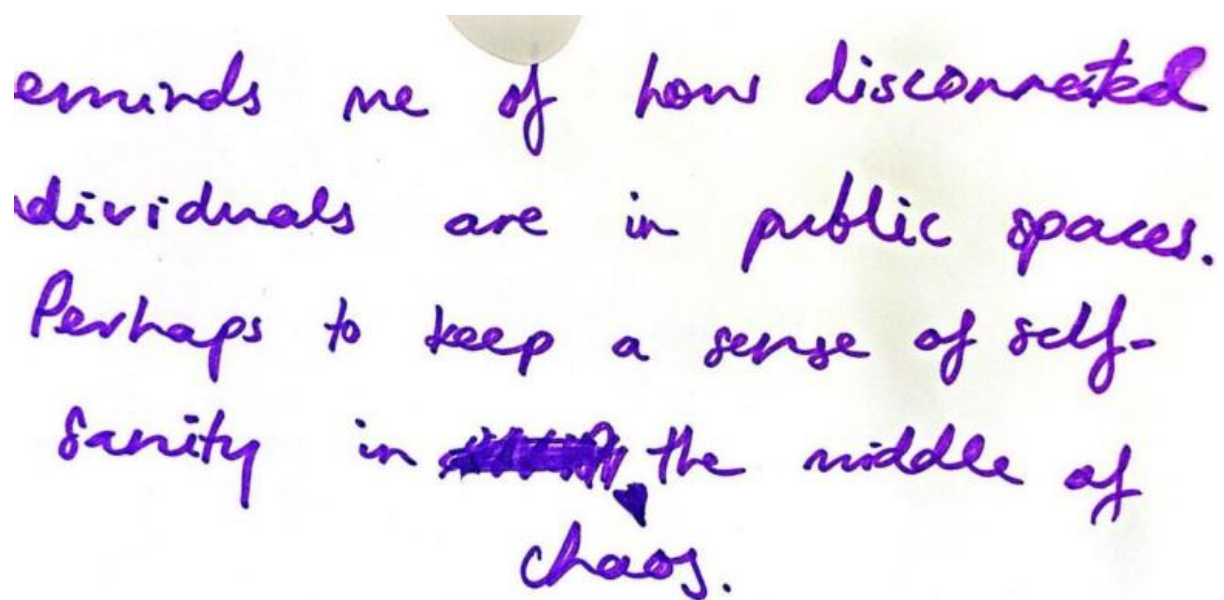 eminds me of how disconnected
dividuals are in public spaces.
Perhaps to keep a sense of self-
sanity in the middle of
chaos.